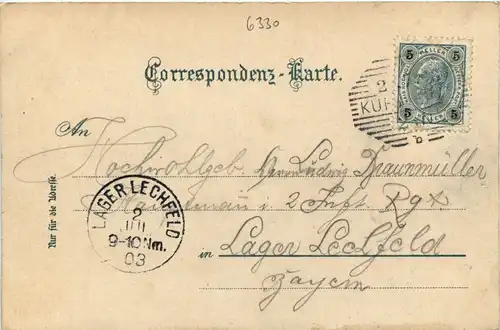 6330
5 HELLER 5
5 HELLER 5
2
KUF
b
Correspondenz-Karte.
An
Hochwohlgeb. Herrn Ludwig Braunmüller
i 2 Inft. Rgt
LAGER LECHFELD
2
JUL
9-10Nm.
03
in Lager Lechfeld
Bayern
Nur für die Adresse.